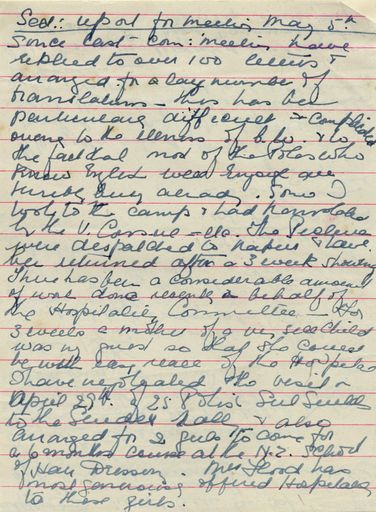 Sec: report for meeting May 5th
Since last com: meeting have
replied to over 100 letters &
arranged for a large number of
translations – this has been
particularly difficult & complicated
owing to the illness of & to
the fact that most of the Poles who
know English were are
terribly busy already. Some I
took to the camp & had translated
by the V. Consul – etc. The
were despatched to & have
been returned after a 3 week
There has been a considerable amount
of work done recently on behalf of
the Hospitality Committee. For
3 weeks a mother of a very sick child
was my guest so that she could
be within easy reach of the Hospital
I have negotiated the visit on
April 29th of 25 Polish Girl Guides
to the Hall & also
arranged for 2 girls to come for
a 6 months course at the N.Z. School
of Hair Dressing. Mrs Flood has
most generously offered Hospitality
to these girls.